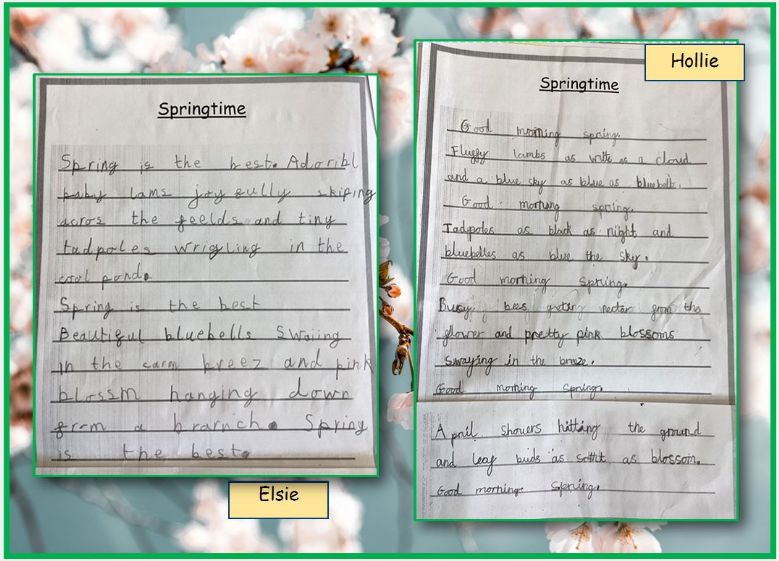 Springtime
Spring is the best. Adoribl
baby lams joyfully skiping
acros the feelds and tiny
tadpoles wrigling in the
cool pond.
Spring is the best
Beautiful bluebells Swaiing
in the carm breez and pink
blossm hanging down
from a brarnch. Spring
is the best.
Elsie
Hollie
Springtime
Good morning spring.
Fluffy lambs as write as a cloud
and a blue sky as blue as bluebells.
Good morning spring.
Tadpoles as black as night and
bluebelles as blue the sky.
Good morning Spring.
Busy bees getting nectar from the
flower and pretty pink blossoms
Swaying in the breeze.
Good morning Spring.
April showers hitting the ground
and leaf buds as as blossom.
Good morning Spring.